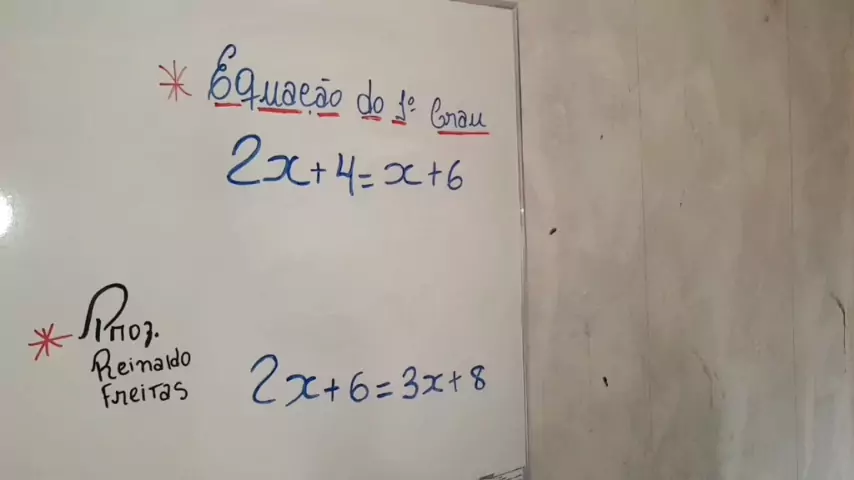 * Equação do 1º Grau
2x+4=x+6
* Prof.
Reinaldo
Freitas
2x+6=3x+8